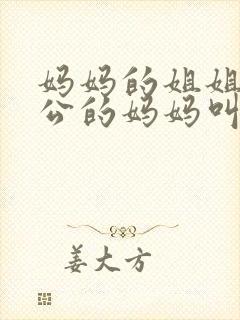 妈妈的姐姐
公的妈妈叫
姜大方